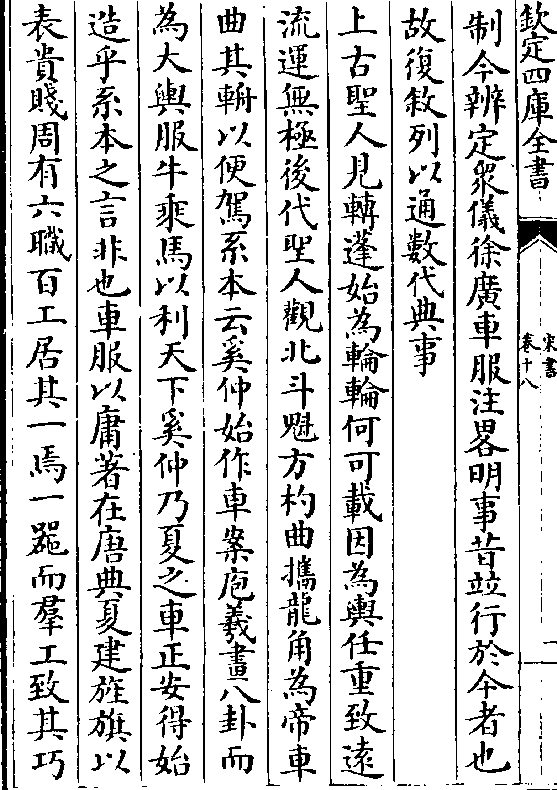 欽定四庫全書
宋書
卷十八
一
制今辨定衆儀徐廣車服注畧明事昔竝行於今者也
故復敘列以通數代典事
上古聖人見轉蓬始為輪輪何可載因為輿任重致逺
流運無極後代聖人觀北斗魁方杓曲攜龍角為帝車
曲其輈以便駕系本云奚仲始作車案庖羲畫八卦而
為大輿服牛乘馬以利天下奚仲乃夏之車正安得始
造乎系本之言非也車服以庸著在唐典夏建旌旗以
表貴賤周有六職百工居其一焉一器而羣工致其巧